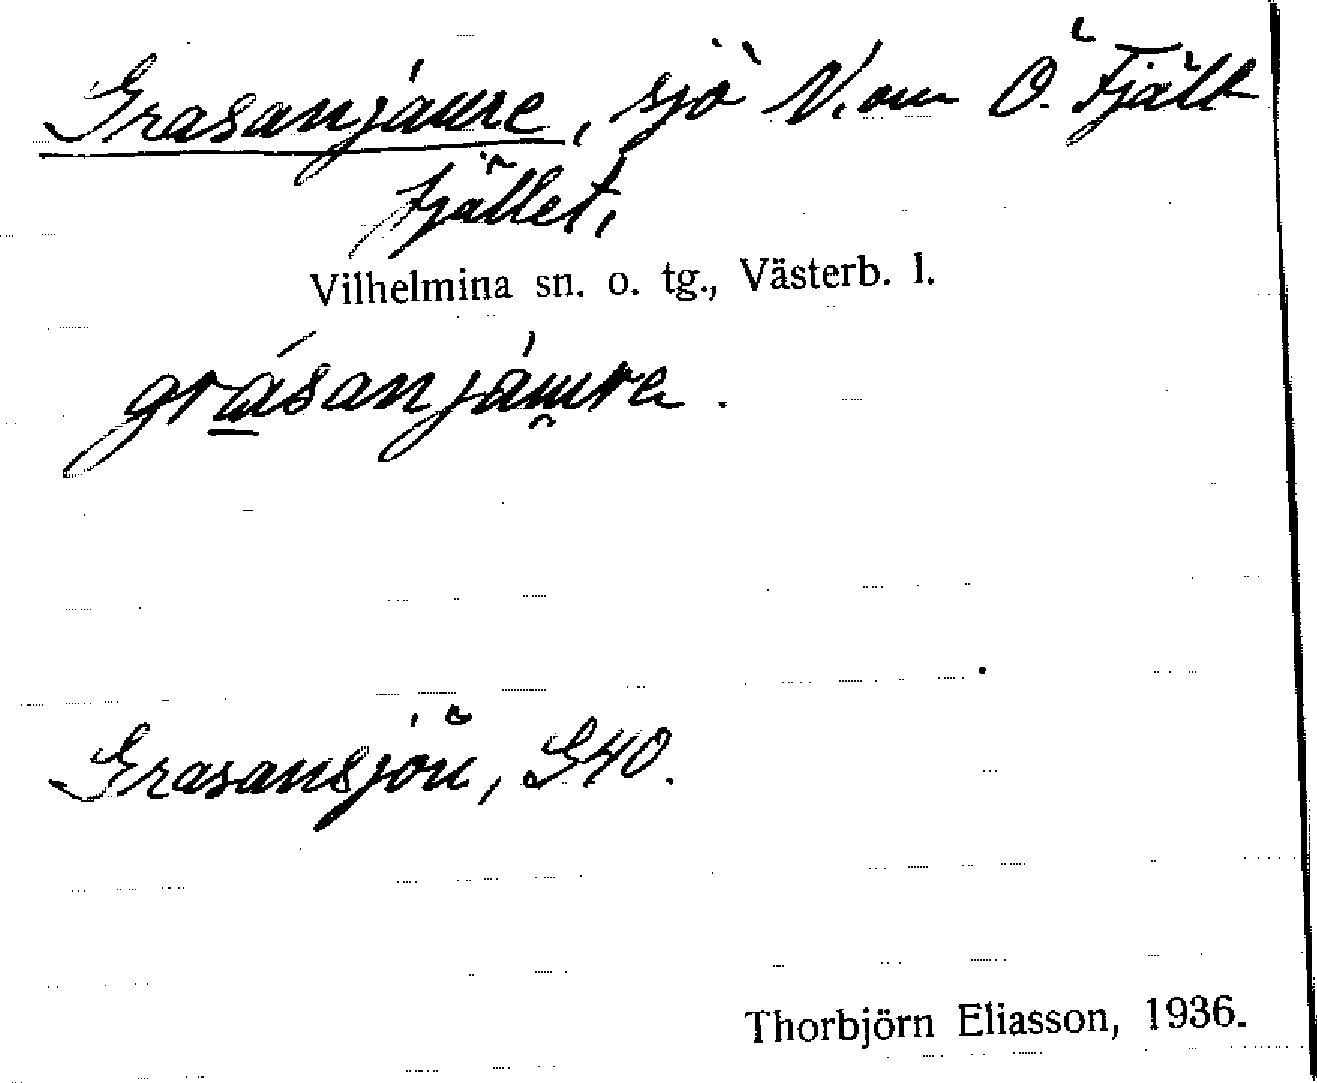 Grasanjaure, sjö V. om Ö. Fjäll-
fjället,
Vilhelmina sn. o. tg., Västerb. l.
grásanjáu̯re.
Grasansjön, G40.
Thorbjörn Eliasson, 1936.